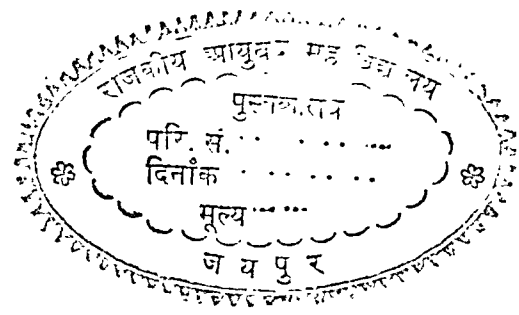 राजकीय आयुर्वेद महाविद्यालय
पुस्तकालय
परि. सं. .. . . . ...
दिनाँक . . . . . . .
मूल्य .... ...
जयपुर